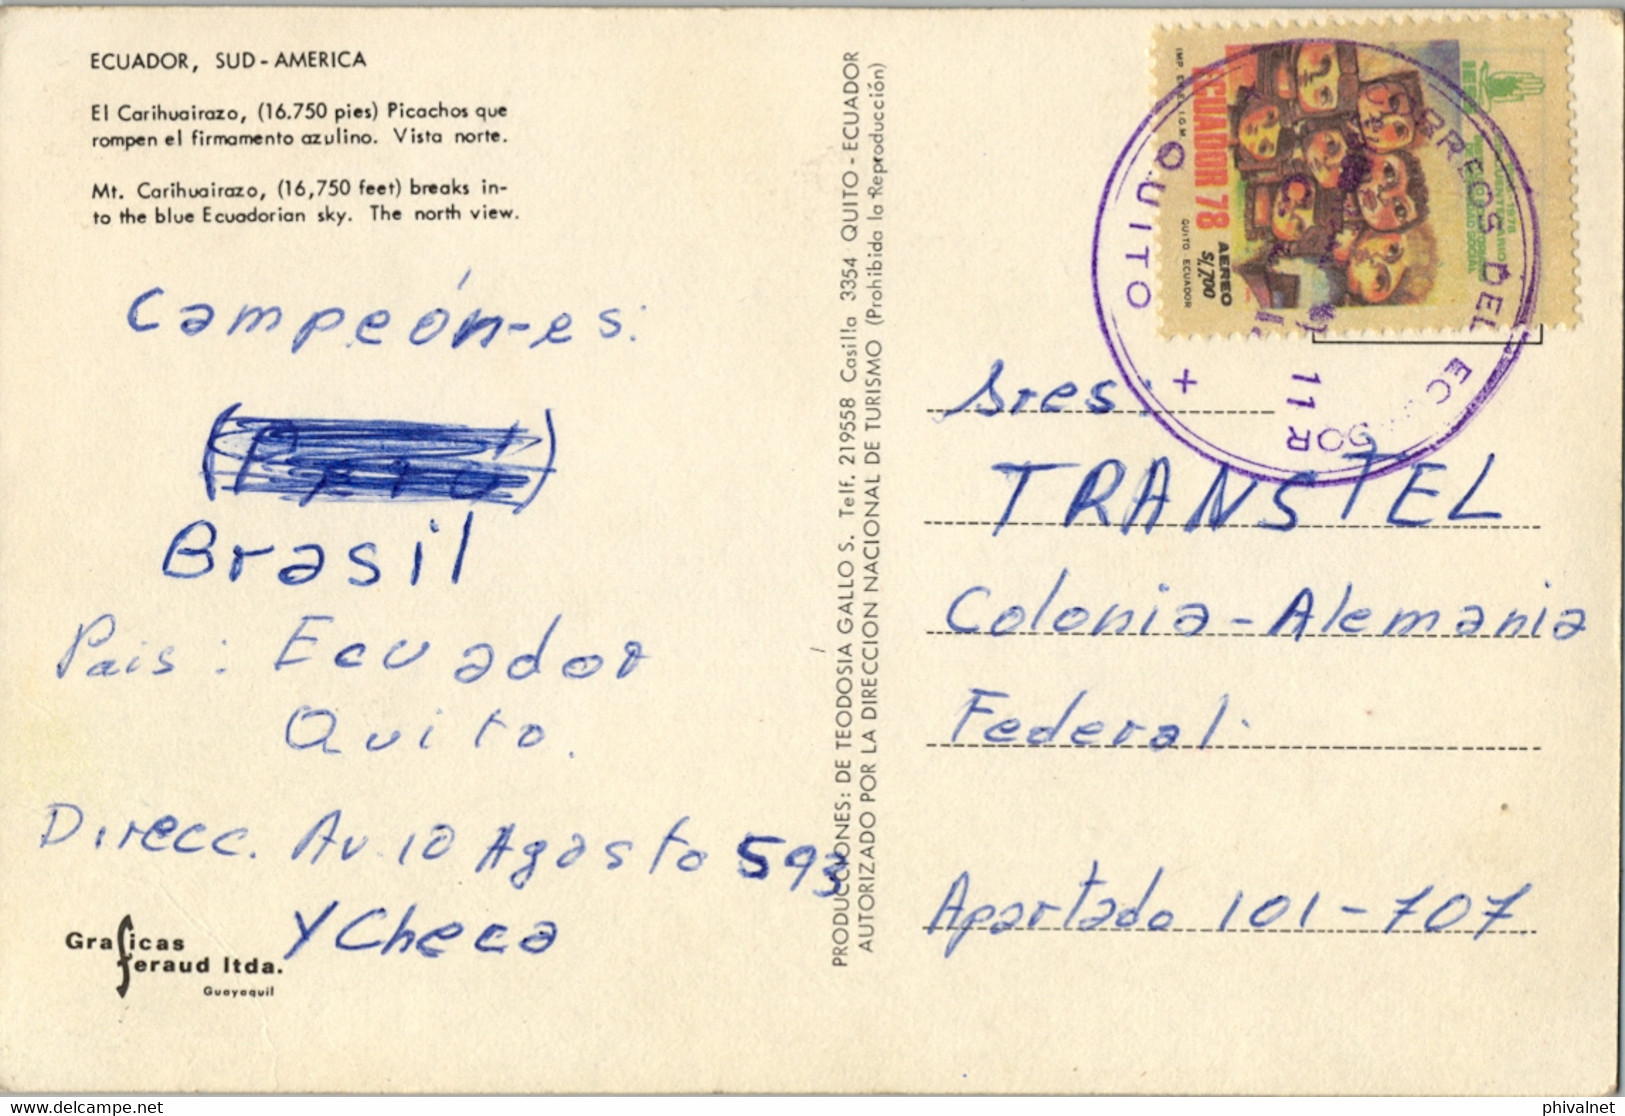 ECUADOR, SUD-AMERICA
El Carihuairazo, (16.750 pies) Picachos que
rompen el firmamento azulino. Vista norte.
Mt. Carihuairazo, (16,750 feet) breaks in-
to the blue Ecuadorian sky. The north view.
Campeón-es:
(Perú)
Brasil
Pais: Ecuador
Quito.
Direcc. Av. 10 Agosto 593
y Checa
Graficas
feraud ltda.
Guayaquil
PRODUCCIONES: DE TEODOSIA GALLO S. Telf. 219558 Casilla 3354 QUITO - ECUADOR
AUTORIZADO POR LA DIRECCION NACIONAL DE TURISMO (Prohibida la Reproducción)
ECUADOR 78
AEREO
S/.7,00
QUITO ECUADOR
1978
SOCIAL
CORREOS DEL
QUITO
+
11
Sres:
TRANSTEL
Colonia-Alemania
Federal.
Apartado 101-707.
delcampe.net
phivalnet